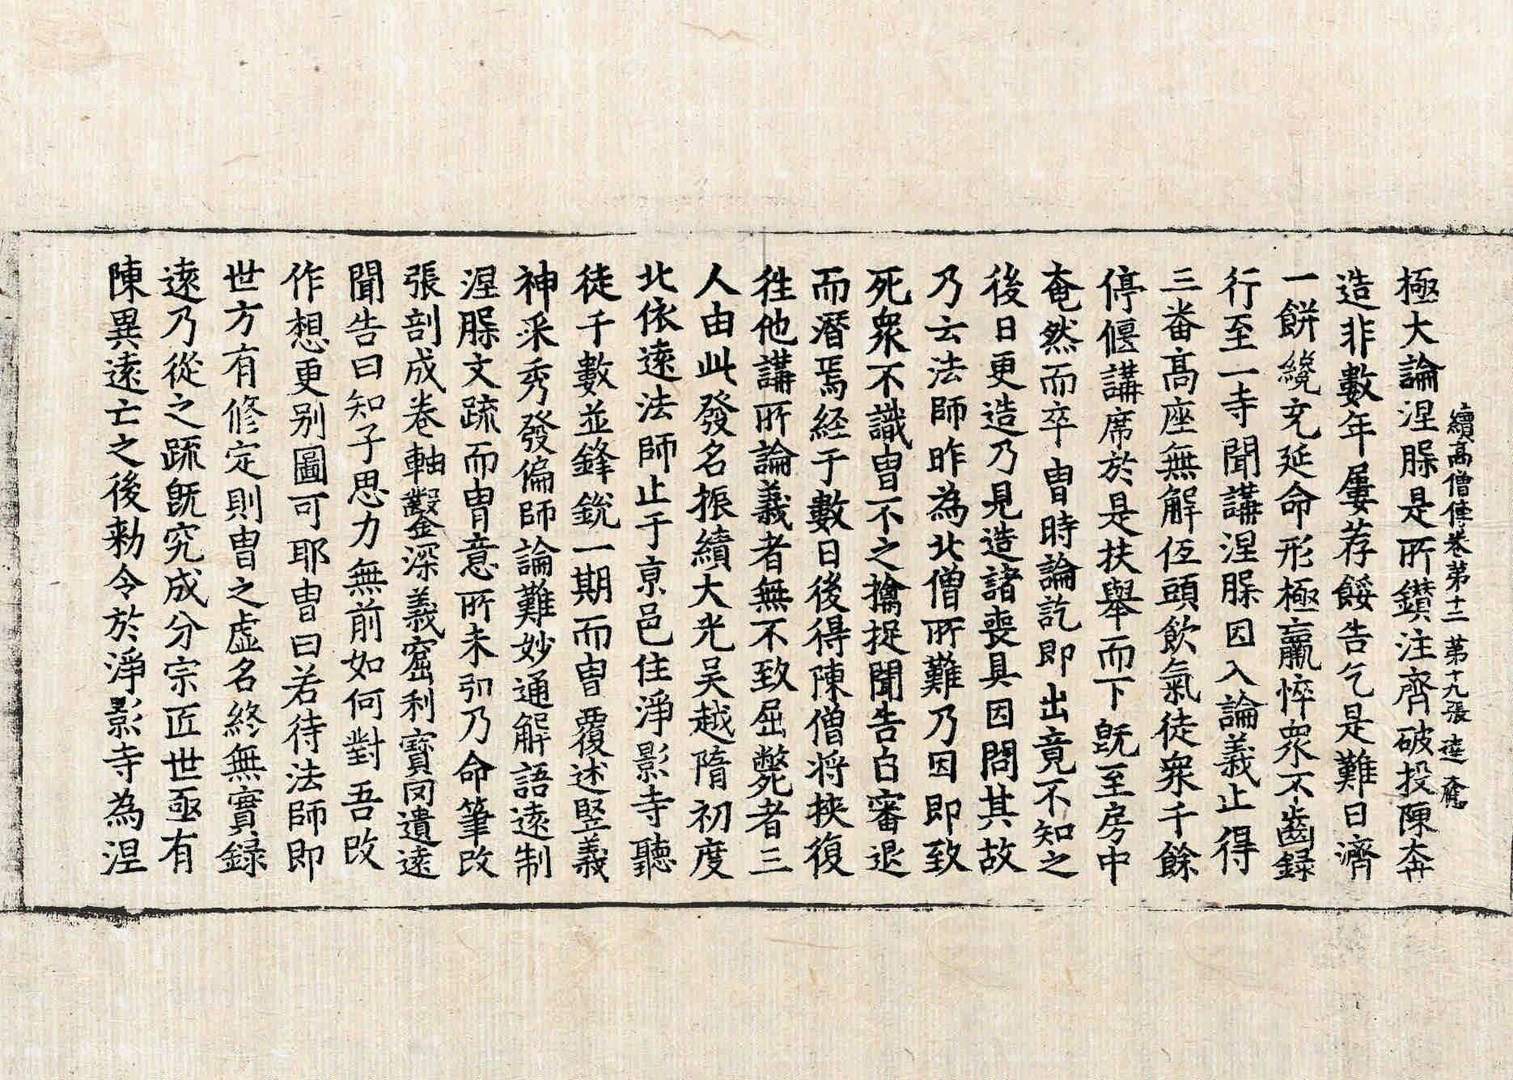 續高僧傳卷第十二 第十九張 達
極大論涅槃是所鑽注齊破投陳奔
造非數年屢荐餒告乞是難日濟
一餅纔充延命形極羸悴衆不齒録
行至一寺聞講涅槃因入論義止得
三番高座無解低頭飲氣徒衆千餘
停偃講席於是扶舉而下旣至房中
奄然而卒曺時論訖即出竟不知之
後日更造乃見造諸喪具因問其故
乃云法師昨為北僧所難乃因即致
死衆不識曺不之擒捉聞告白審退
而潛焉経于數日後得陳僧将挾復
往他講所論義者無不致屈斃者三
人由此發名振績大光吴越隋初度
北依遠法師止于京邑住淨影寺聽
徒千數並鋒鋭一期而曺覆述竪義
神采秀發偏師論難妙通解語遠制
涅槃文䟽而曺意所未弘乃命筆改
張剖成卷軸鑿深義窟利寶罔遺遠
聞告曰知子思力無前如何對吾改
作想更别圖可耶曺曰若待法師即
世方有修定則曺之虛名終無實録
遠乃從之䟽旣究成分宗匠世亟有
陳異遠亡之後勑令於淨影寺為涅